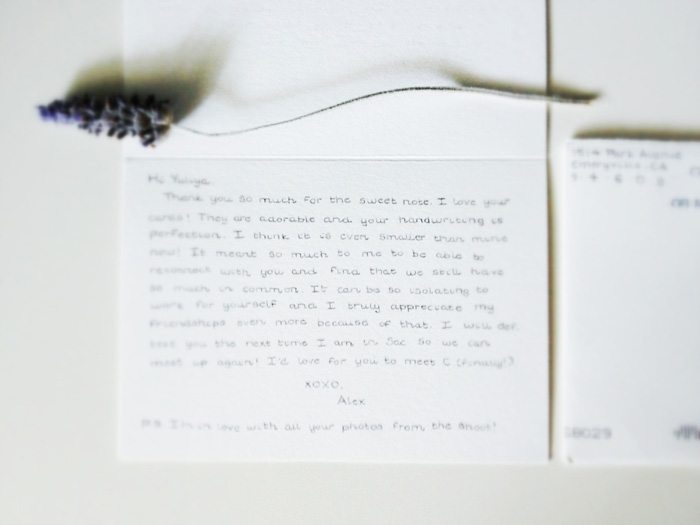 Hi
Thank you so much for the sweet note. I love your
cards! They are adorable and your handwriting is
perfection. I think it is even smaller than mine
now! It meant so much to me to be able to
reconnect with you and find that we still have
so much in common. It can be so isolating to
work for yourself and I truly appreciate my
friendships even more because of that. I will def.
text you the next time I am in Sac so we can
meet up again! I'd love for you to meet C (finally!)
xoxo,
Alex
PS. I'm in love with all your photos from the shoot!
Park Avenue
Emeryville, CA
94608